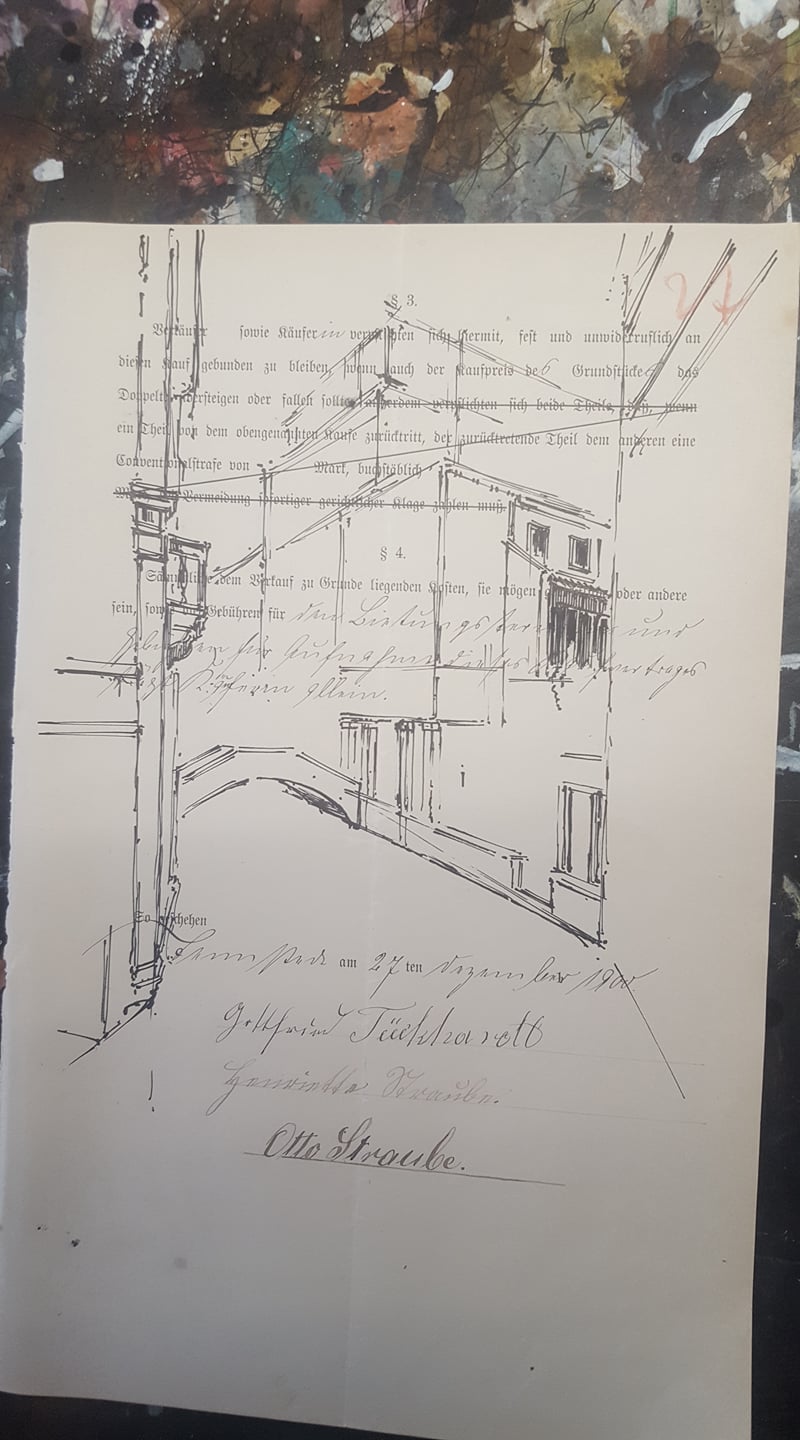 27
§ 3.
Verkäufer sowie Käuferin verpflichten sich hiermit, fest und unwiderruflich an
diesen Kauf gebunden zu bleiben, wenn auch der Kaufpreis des Grundstückes das
Doppelte übersteigen oder fallen sollte, außerdem verpflichten sich beide Theile, daß, wenn
ein Theil von dem obengenannten Kaufe zurücktritt, der zurücktretende Theil dem anderen eine
Conventionalstrafe von Mark, buchstäblich
Mark bei Vermeidung sofortiger gerichtlicher Klage zahlen muß.
§ 4.
Sämmtliche dem Verkauf zu Grunde liegenden Kosten, sie mögen oder andere
sein, sowie Gebühren für den Bietungstermin und
Gebühren für Aufnahme dieses Kaufvertrages
Käuferin allein.
So geschehen
Tennstedt am 27 ten Dezember 1900.
Gottfried
Henriette Straube.
Otto Straube.